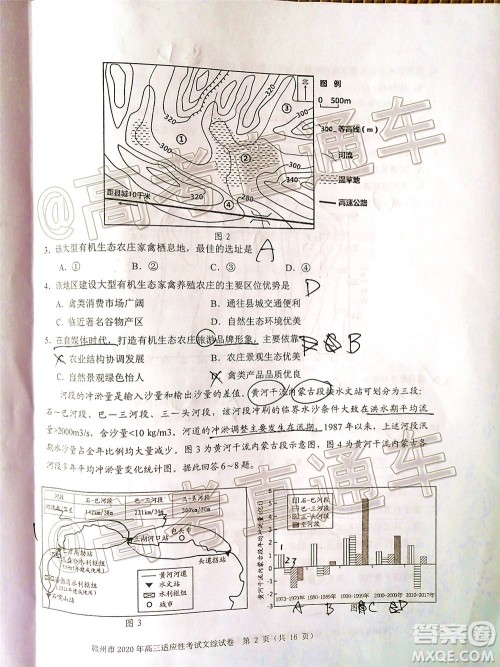 北
图 例
0 500m
300 等高线（m）
河流
湿草地
高速公路
320
300
320
320
300
280
①
②
③
④
距县城10千米
图 2
3. 该大型有机生态农庄家禽栖息地，最佳的选址是 A
A. ① B. ② C. ③ D. ④
4. 该地区建设大型有机生态农庄家禽养殖农庄的主要区位优势是 D
A. 禽类消费市场广阔 B. 通往县城交通便利
C. 临近著名谷物产区 D. 自然生态环境优美
5. 在自媒体时代，打造有机生态农庄旅游品牌形象，主要依靠 B
A. 农业结构协调发展 B. 农庄景观生态优美
C. 自然景观绿色怡人 D. 禽类产品品质优良
河段的冲淤量是输入沙量和输出沙量的差值，黄河干流内蒙古段按水文站可划分为三段：
石一巴河段、巴一三河段、三一头河段，该河段河道冲刷的临界水沙条件大致在洪水期平均流
量>2000m3/s，含沙量<10 kg/m3，河道的冲淤调整主要发生在流潮。1987 年以上，上述河段汛
期水沙量占全年比例均明显减少。图 3 为黄河干流内蒙古段示意图。图 4 为黄河干流内蒙古各
河段多年平均冲淤量变化统计图。据此回答 6～8 题。
河段 石一巴河段 巴一三河段 三一头河段
包头市
三湖河口站
头道拐站
石嘴山站
黄河河道
水文站
水利枢纽
城市
图 3
黄河干流内蒙古段年平均冲淤量（亿t）
石一巴河段
巴一三河段
三一头河段
全河段
1973-1979年 1980-1989年 1990-1999年 2000-2009年 2010-2017年
A B C D
赣州市 2020 年高三适应性考试文综试卷 第 2 页（共 16 页）
@高考直通车
@高考直通车
答案圈
MXQE.COM